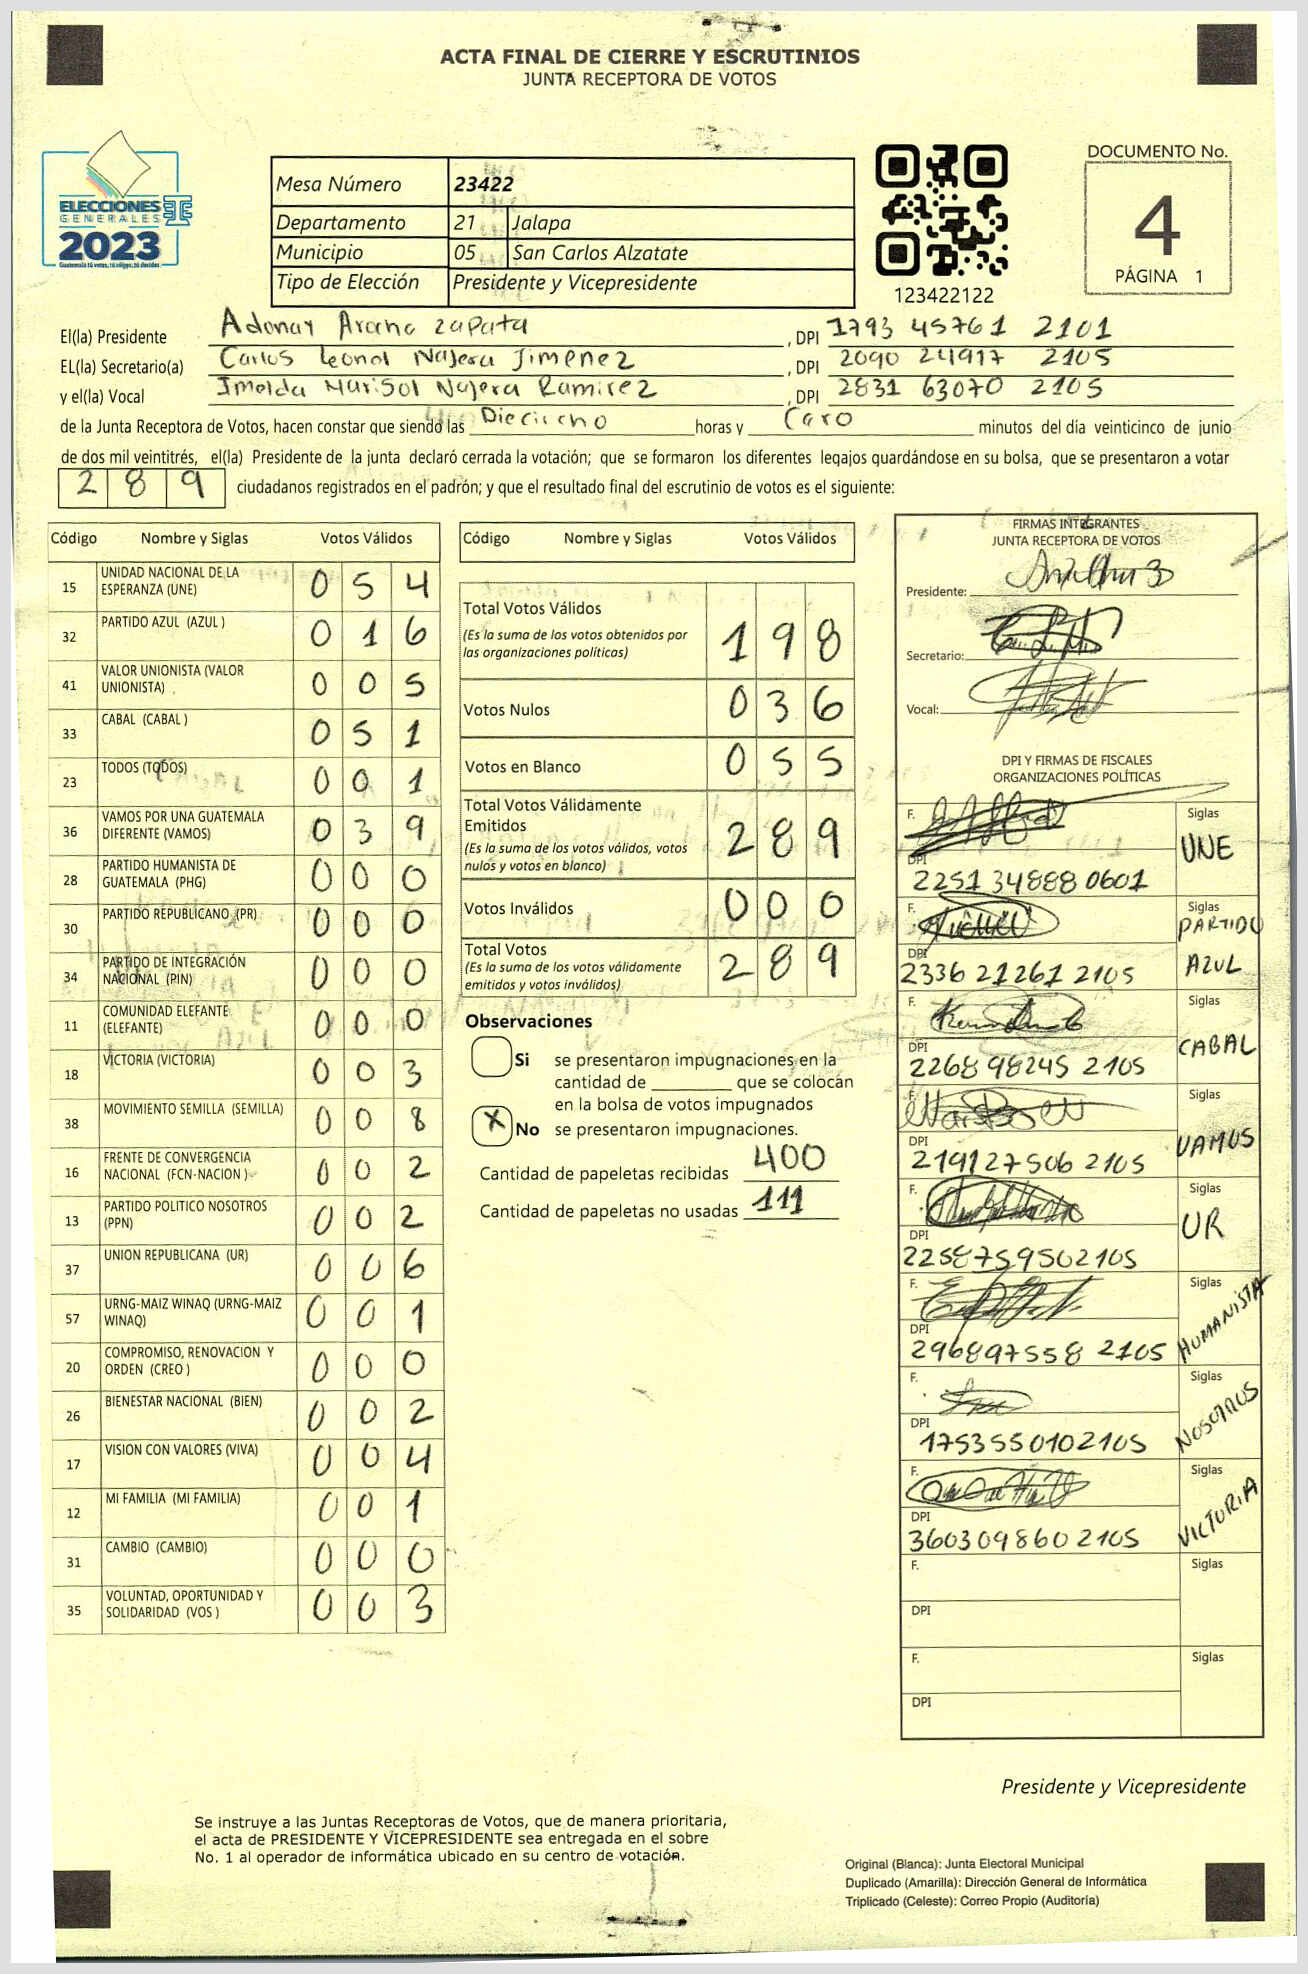 ACTA FINAL DE CIERRE Y ESCRUTINIOS
JUNTA RECEPTORA DE VOTOS
ELECCIONES
GENERALES
2023
Guatemala tú votas, tú eliges, tú decides
Mesa Número 23422
Departamento 21 Jalapa
Municipio 05 San Carlos Alzatate
Tipo de Elección Presidente y Vicepresidente
123422122
DOCUMENTO No.
4
PÁGINA 1
El(la) Presidente Adonay Arana zapata, DPI 1793 45761 2101
EL(la) Secretario(a) Carlos Leonel Najera Jimenez, DPI 2090 24917 2105
y el(la) Vocal Imelda Marisol Najera Ramirez, DPI 2831 63070 2105
de la Junta Receptora de Votos, hacen constar que siendo las Dieciocho horas y Cero minutos del día veinticinco de junio
de dos mil veintitrés, el(la) Presidente de la junta declaró cerrada la votación; que se formaron los diferentes legajos guardándose en su bolsa, que se presentaron a votar
289 ciudadanos registrados en el padrón; y que el resultado final del escrutinio de votos es el siguiente:
Código Nombre y Siglas Votos Válidos
15 UNIDAD NACIONAL DE LA ESPERANZA (UNE) 0 5 4
32 PARTIDO AZUL (AZUL ) 0 1 6
41 VALOR UNIONISTA (VALOR UNIONISTA) 0 0 5
33 CABAL (CABAL ) 0 5 1
23 TODOS (TODOS) 0 0 1
36 VAMOS POR UNA GUATEMALA DIFERENTE (VAMOS) 0 3 9
28 PARTIDO HUMANISTA DE GUATEMALA (PHG) 0 0 0
30 PARTIDO REPUBLICANO (PR) 0 0 0
34 PARTIDO DE INTEGRACIÓN NACIONAL (PIN) 0 0 0
11 COMUNIDAD ELEFANTE (ELEFANTE) 0 0 0
18 VICTORIA (VICTORIA) 0 0 3
38 MOVIMIENTO SEMILLA (SEMILLA) 0 0 8
16 FRENTE DE CONVERGENCIA NACIONAL (FCN-NACION ) 0 0 2
13 PARTIDO POLITICO NOSOTROS (PPN) 0 0 2
37 UNION REPUBLICANA (UR) 0 0 6
57 URNG-MAIZ WINAQ (URNG-MAIZ WINAQ) 0 0 1
20 COMPROMISO, RENOVACION Y ORDEN (CREO ) 0 0 0
26 BIENESTAR NACIONAL (BIEN) 0 0 2
17 VISION CON VALORES (VIVA) 0 0 4
12 MI FAMILIA (MI FAMILIA) 0 0 1
31 CAMBIO (CAMBIO) 0 0 0
35 VOLUNTAD, OPORTUNIDAD Y SOLIDARIDAD (VOS ) 0 0 3
Código Nombre y Siglas Votos Válidos
Total Votos Válidos 1 9 8
(Es la suma de los votos obtenidos por
las organizaciones políticas)
Votos Nulos 0 3 6
Votos en Blanco 0 5 5
Total Votos Válidamente
Emitidos 2 8 9
(Es la suma de los votos válidos, votos
nulos y votos en blanco)
Votos Inválidos 0 0 0
Total Votos 2 8 9
(Es la suma de los votos válidamente
emitidos y votos inválidos)
Observaciones
Si se presentaron impugnaciones en la
cantidad de ________ que se colocan
en la bolsa de votos impugnados
X No se presentaron impugnaciones.
Cantidad de papeletas recibidas 400
Cantidad de papeletas no usadas 111
FIRMAS INTEGRANTES
JUNTA RECEPTORA DE VOTOS
Presidente:
Secretario:
Vocal:
DPI Y FIRMAS DE FISCALES
ORGANIZACIONES POLÍTICAS
F. Siglas
UNE
DPI
2251 34888 0601
F. Siglas
PARTIDO
AZUL
DPI
2336 21261 2105
F. Siglas
CABAL
DPI
2268 98245 2105
F. Siglas
VAMOS
DPI
219127506 2105
F. Siglas
UR
DPI
2258759502105
F. Siglas
HUMANISTA
DPI
296897558 2105
F. Siglas
NOSOTROS
DPI
1753550102105
F. Siglas
VICTORIA
DPI
360309860 2105
F. Siglas
DPI
F. Siglas
DPI
Presidente y Vicepresidente
Se instruye a las Juntas Receptoras de Votos, que de manera prioritaria,
el acta de PRESIDENTE Y VICEPRESIDENTE sea entregada en el sobre
No. 1 al operador de informática ubicado en su centro de votación.
Original (Blanca): Junta Electoral Municipal
Duplicado (Amarilla): Dirección General de Informática
Triplicado (Celeste): Correo Propio (Auditoría)